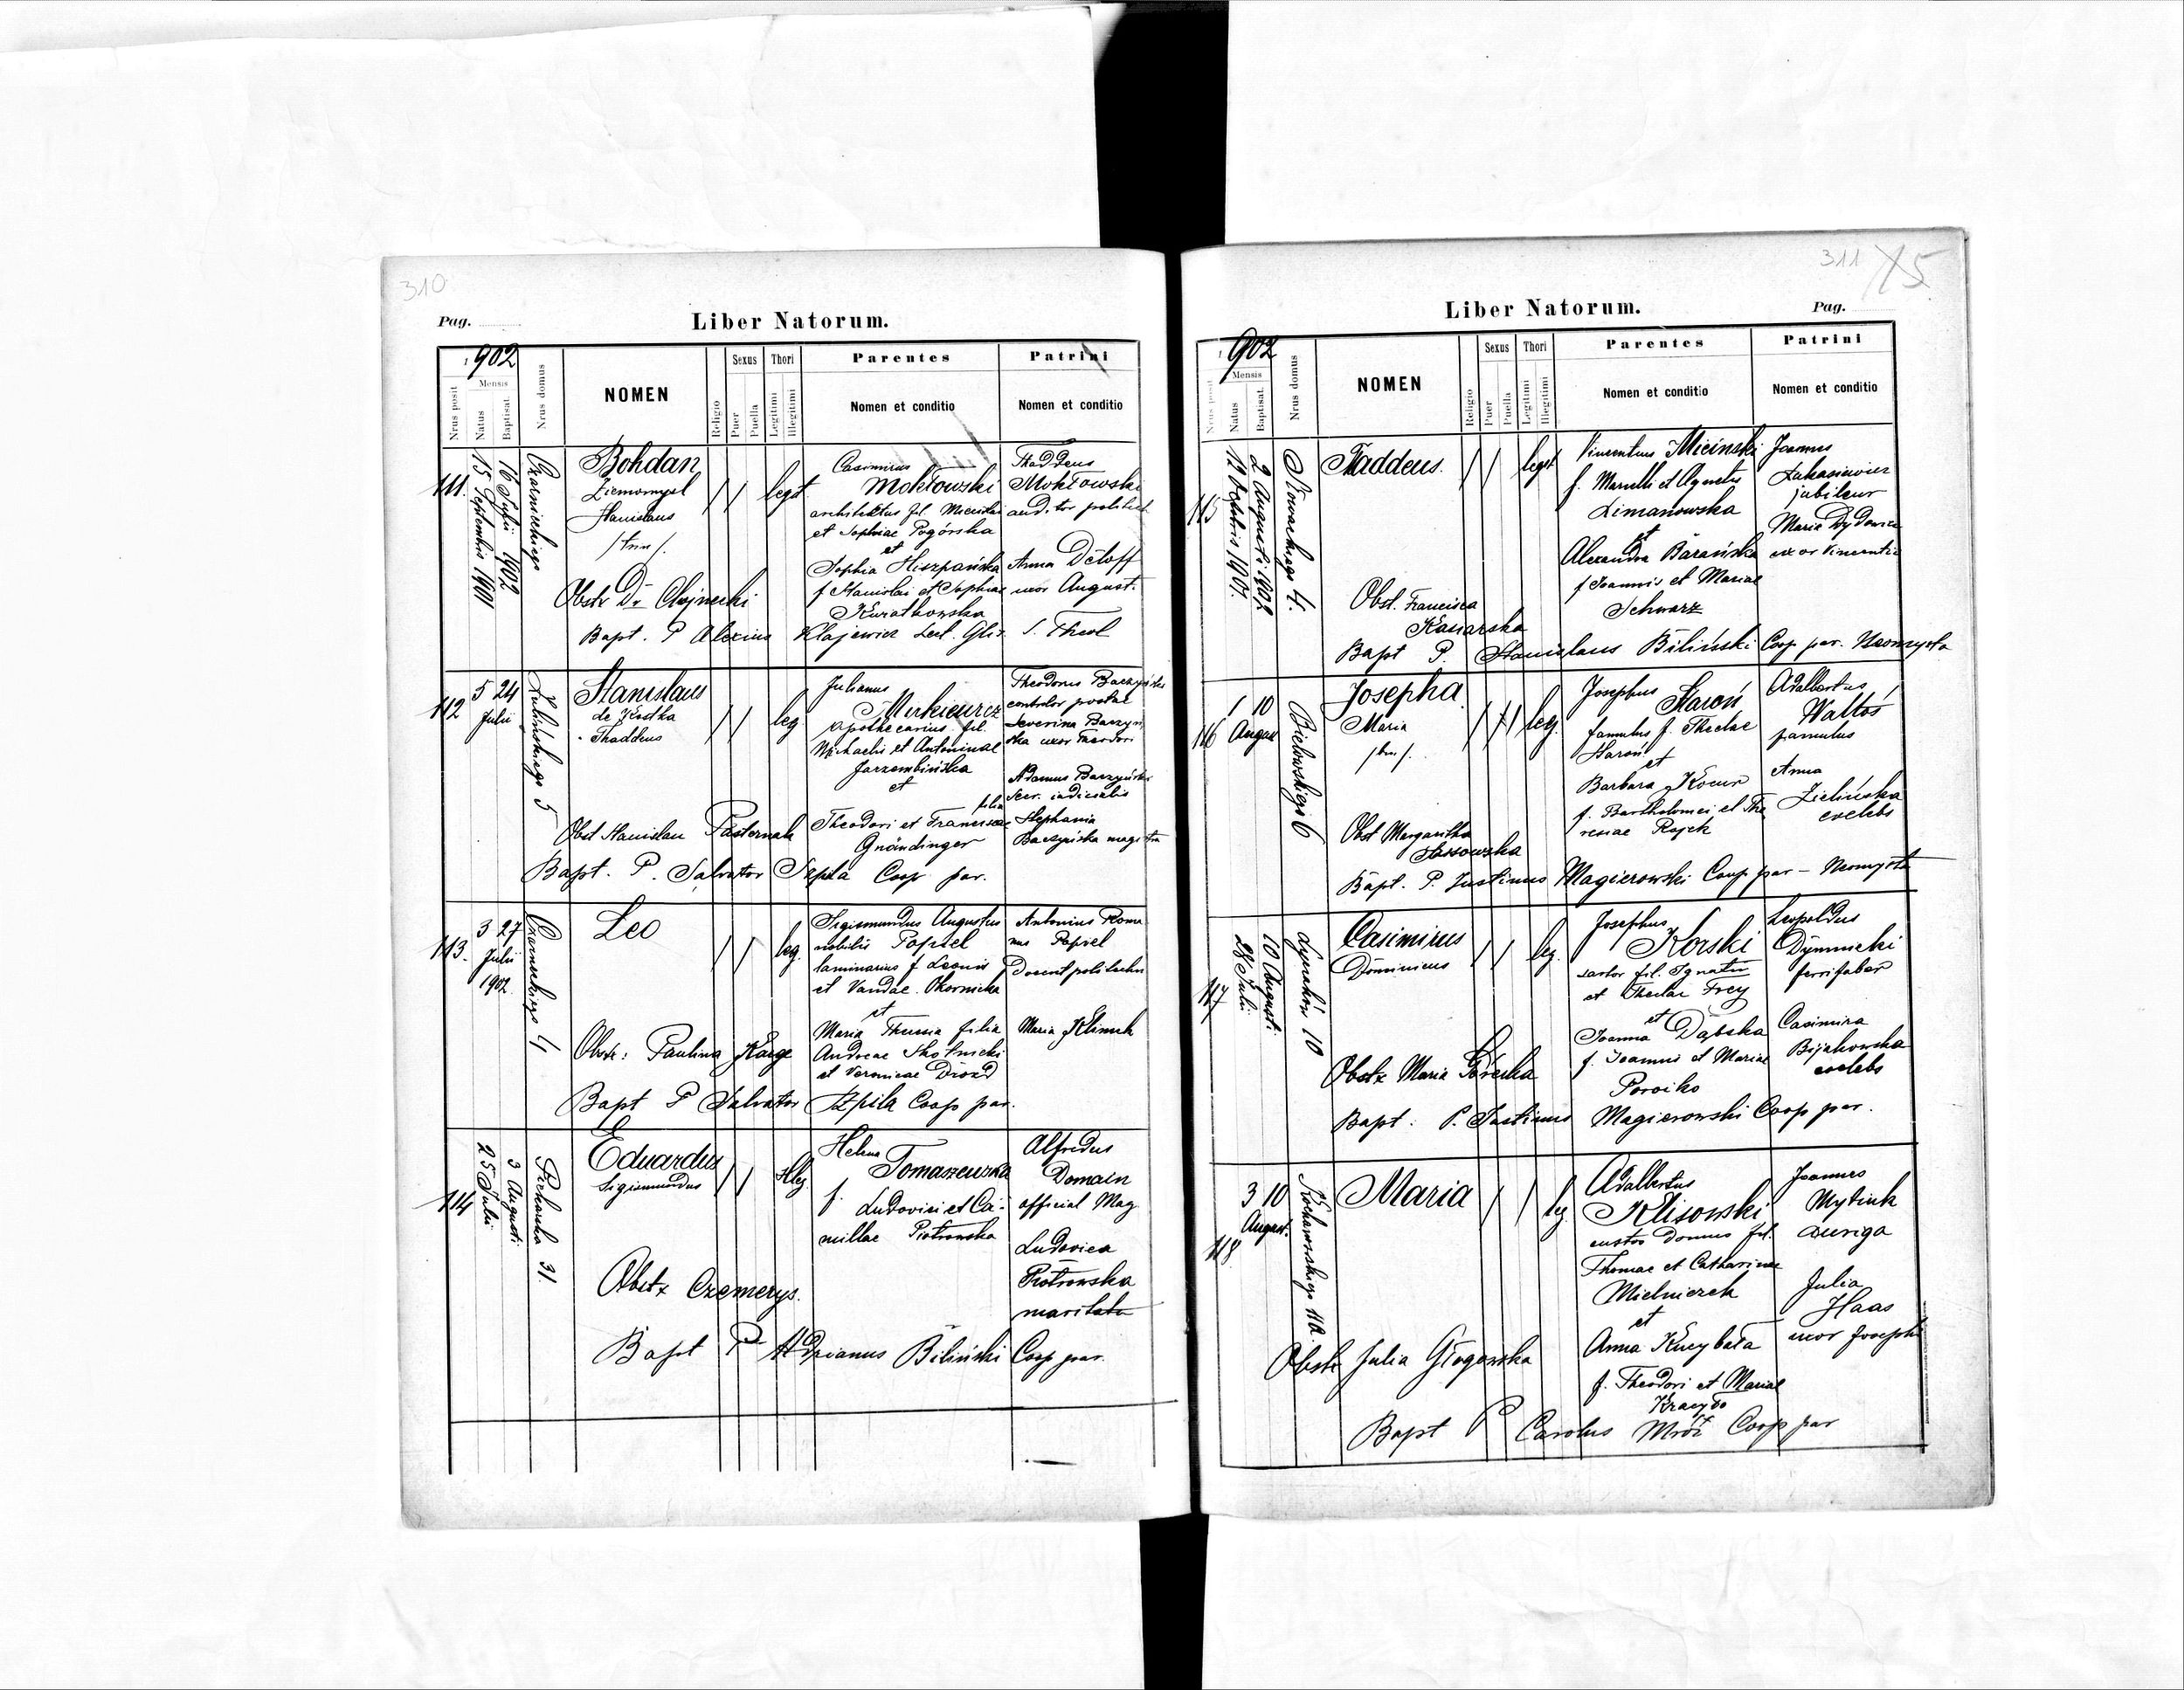 310
Pag.
Liber Natorum.
1902
Nrus posit
Mensis
Natus
Baptisat.
Nrus domus
NOMEN
Religio
Sexus
Puer
Puella
Thori
Legitimi
Illegitimi
Parentes
Nomen et conditio
Patrini
Nomen et conditio
111.
15 Septembris 1901
16 Julii 1902
Bohdan
Ziemomysł
Stanislaus
legit
Casimirus
Mokłowski
architektus fil.
et Sophiae Pogórska
et
Sophia Hiszpańska
f Stanislai et Sophiae
Kwiatkowska
Thaddeus
Mokłowski
auditor politech
Anna Detoff
uxor August.
Obstx Dr
Bapt. P Alexius Klajewicz Lect. S. Theol
112
5 24
Julii
5
Stanislaus
de Kostka
Thaddeus
leg
Julianus
apothecarius fil.
Michaelis et Antoninae
Jarzembińska
et
filia
Theodori et Franciscae
Gnändinger
Theodorus Baczyński
controlor postae
Severina Baczyń
ska uxor Theodori
Adamus Baczyński
Secr. iudicialis
Stephania
Baczyńska
Obst Stanislau Pasternak
Bapt. P. Salvator Szpila Coop par.
113.
3 27
Julii
1902
4
Leo
leg.
Sigismundus Augustus
nobilis Papiel
laminarius f Leonis
et Vandae
et
Maria filia
Andreae Skotnicki
et Veronicae Drozd
Antonius Roma
nus Papiel
Docent politechn
Maria Klimek
Obstx: Paulina Karge
Bapt P Salvator Szpila Coop par.
114
25 Julii
3 Augusti
Piekarska 31.
Eduardus
Sigismundus
Illeg
Helena
Tomaszewska
f.
Ludovici et Ca-
millae Piotrowska
Alfredus
Domain
official Mag
Ludovica
Piotrowska
maritata
Obstx Czemerys.
Bapt P Adrianus Biliński Coop par.
311
X5
Liber Natorum.
Pag.
1902
Nrus posit
Mensis
Natus
Baptisat.
Nrus domus
NOMEN
Religio
Sexus
Puer
Puella
Thori
Legitimi
Illegitimi
Parentes
Nomen et conditio
Patrini
Nomen et conditio
115
2 Augusti 1902
Słowackiego 4.
Thaddeus.
legit
Vincentius Miciński
f. Marcelli et Agnetis
Limanowska
et
Alexandra Barańska
f Joannis et Mariae
Schwarz
Joannes
Łukasiewicz
Maria
uxor Vincentii
Obst. Francisca
Bapt P. Stanislaus Biliński Coop par. Neomysta
116
1 10
August
Bielowskiego 6
Josepha
Maria
leg.
Josephus
Staroń
famulus f. Theclae
Staroń
et
Barbara Kocur
f. Bartholomei et The
resiae Rajek
Adalbertus
Waltoś
famulus
Anna
Zielińska
coelebs
Obst Margaritha
Bapt. P. Justinus Magierowski Coop par - Neomysta
117
28 Julii
10 Augusti.
10
Casimirus
Dominicus
leg.
Josephus
Korski
sartor fil. Ignatii
et Theclae Frey
et
Joanna Dąbska
f. Joannis et Mariae
Poroiko
Leopoldus
Dymnicki
ferrifaber
Casimira
Bijakowska
coelebs
Obstx Maria Górecka
Bapt: P. Justinus Magierowski Coop par.
118
3 10
August.
Kochanowskiego 11a.
Maria
leg
Adalbertus
Klisowski
custos domus fil.
Thomae et Catharinae
Mielniczek
et
Anna Kucybała
f. Theodori et Mariae
Joannes
Mytiuk
auriga
Julia
Haas
uxor Josephi
Obstx Julia Głogowska
Bapt P Carolus Mróz Coop par